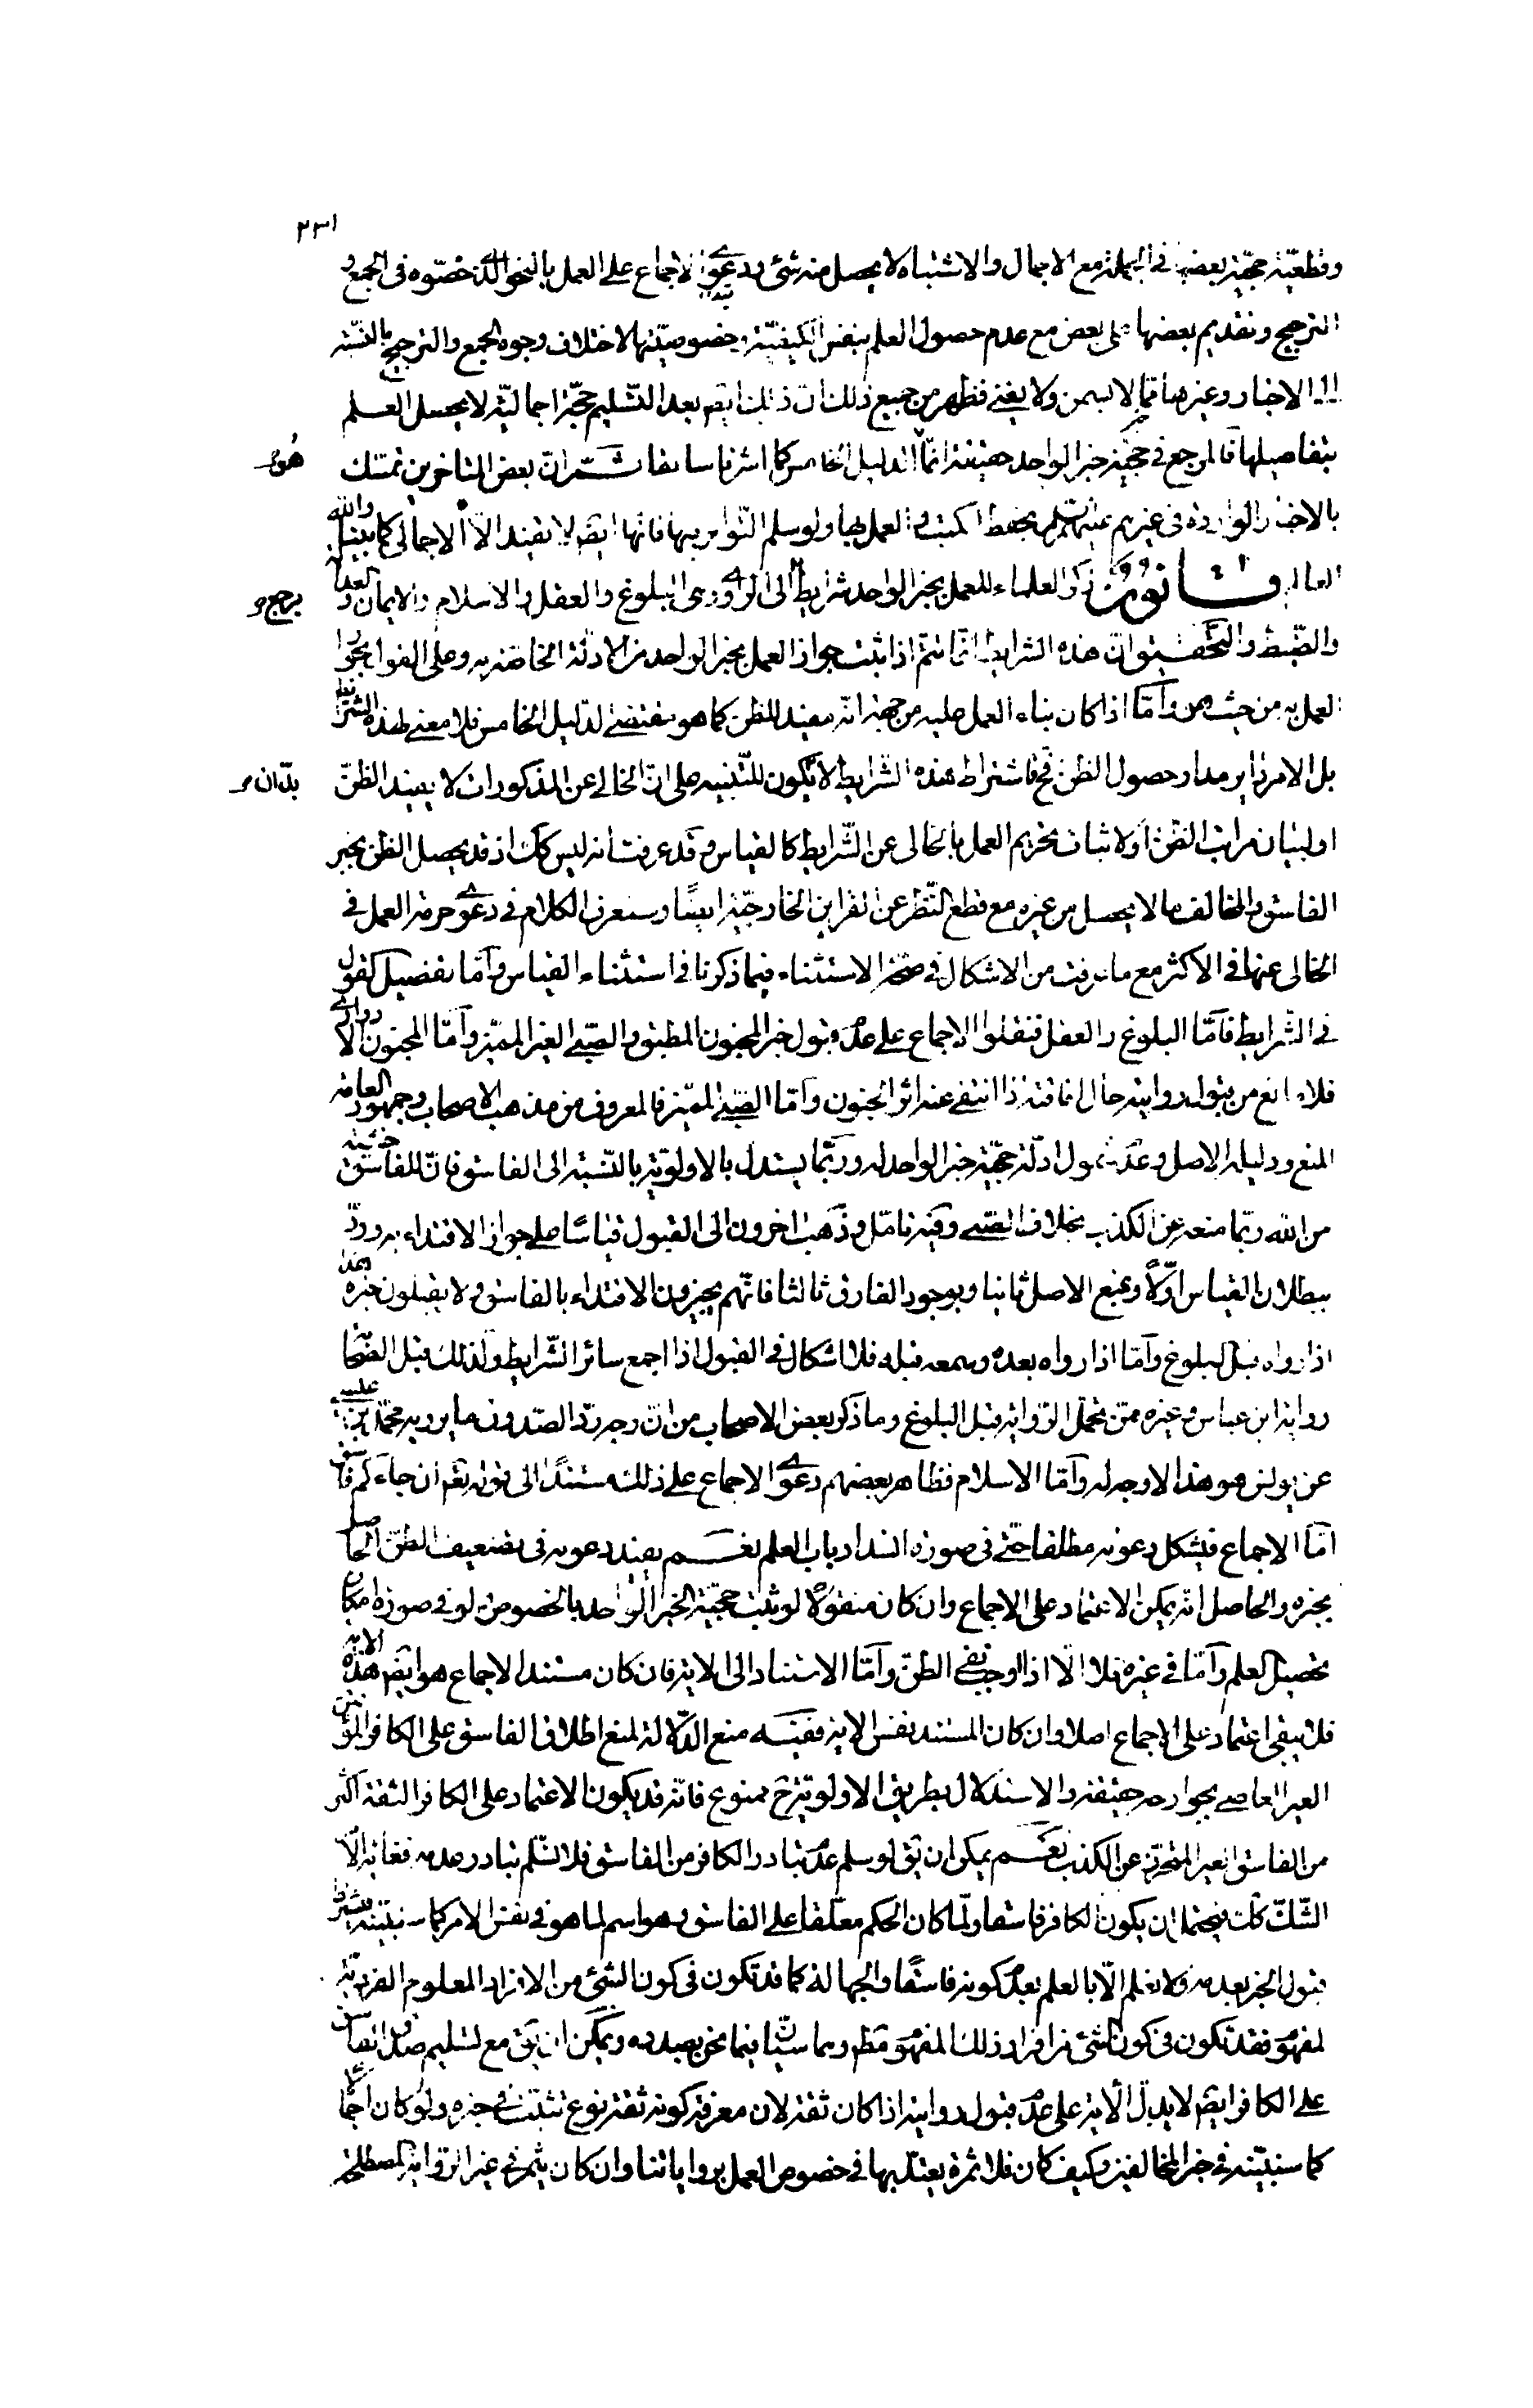 ٢٣١
وقطعيّة حجّيّة بعضها في الجملة مع الاجمال والاشتباه لا يحصل منه شئ ودعوى الاجماع على العمل بالنحو الذى خصّوه فى الجمع و
الترجيح وتقديم بعضها على بعض مع عدم حصول العلم بنفس الكيفيّة وخصوصيّتها لاختلاف وجوه الجمع والترجيح بالنّسبة
الى الاخبار وغيرها ممّا لا يسمن ولا يغنى فظهر من جميع ذلك انّ ذلك ايضا بعد التّسليم حجّة اجماليّة لا يحصل العلم
بتفاصيلها فالمرجع في حجّية خبر الواحد حقيقة انّما الدليل الخامس كما اشرنا سابقا ثمّ انّ بعض المتاخرين تمسّك هو
بالاخبار الواردة فى غيرهم عليهم السلم بحفظ الكتب والعمل بها ولو سلم التّواتر بها فانّها ايضا لا تفيد الّا الاجمالى كما بيّنا والله
العالم قانون ذكر العلماء للعمل بخبر الواحد شرايط الى الراوى وهى البلوغ والعقل والاسلام والايمان والعدالة يرجع
والضّبط والتّحقيق انّ هذه الشرايط انّما تتمّ اذا ثبت جواز العمل بخبر الواحد من الادلّة الخاصّة به وعلى القول بجواز
العمل به من حيث هو وامّا اذا كان بناء العمل عليه من جهة انّه مفيد للظن كما هو مقتضى الدّليل الخامس فلا معنى لهذه الشّرايط
بل الامر داير مدار حصول الظن فح فاشتراط هذه الشّرايط لا يكون للتّنبيه على انّ الخالى عن المذكورات لا يفيد الظنّ بدّ ان
او لبيان مراتب الظن او لاثبات تحريم العمل بالخالى عن الشّرايط كالقياس وقد عرفت انه ليس كك اذ قد يحصل الظن بخبر
الفاسق والمخالف ما لا يحصل من غيره مع قطع النّظر عن القراين الخارجيّة ايضا وستعرف الكلام في دعوى حرمة العمل فى
الخالى عنها فى الاكثر مع ما عرفت من الاشكال في صحّة الاستثناء فيما ذكرنا في استثناء القياس وامّا تفصيل القول
فى الشّرايط فامّا البلوغ والعقل فنقلوا الاجماع على عدم قبول خبر المجنون المطبق والصّبى الغير المميّز وامّا المجنون الادوارى
فلا مانع من قبول روايته حال افاقته اذا انتفى عنه اثر الجنون وامّا الصّبى المميّز فالمعروف من مذهب الاصحاب وجمهور العامّة
المنع ودليله الاصل وعدم شمول ادلّة حجّية خبر الواحد له وربّما يستدل بالاولويّة بالنّسبة الى الفاسق فانّ للفاسق خشية
من الله ربّما منعه عن الكذب بخلاف الصّبى وفيه تامّل وذهب اخرون الى القبول قياسًا على جواز الاقتداء به وردّ
ببطلان القياس اوّلًا وبمنع الاصل ثانيا وبوجود الفارق ثالثا فانّهم يجيزون الاقتداء بالفاسق ولا يقبلون خبره هذا
اذا رواه قبل البلوغ وامّا اذا رواه بعده وسمعه قبله فلا اشكال في القبول اذا اجمع سائر الشّرايط ولذلك قبل الصّحابة
رواية ابن عباس وغيره ممّن تحمّل الرّواية قبل البلوغ وما ذكر بعض الاصحاب من انّ وجه ردّ الصّدوق ما يرويه محمّد بن عيسى
عن يونس هو هذا لا وجه له وامّا الاسلام فظاهر بعضهم دعوى الاجماع على ذلك مستندًا الى قوله تعم ان جاءكم فاسق
امّا الاجماع فيشكل دعويه مطلقا حتّى فى صورة انسداد باب العلم نعم يفيد دعويه فى تضعيف الظنّ الحاصل
بخبره والحاصل انّه يمكن الاعتماد على الاجماع وان كان منقولا لو ثبت حجّيّة الخبر الواحد بالخصوص ولو فى صورة امكان
تحصيل العلم وامّا فى غيره فلا الّا اذا اوجب نفى الظنّ وامّا الاستناد الى الاية فان كان مستند الاجماع هو ايضا هذه الاية
فلا يبقى اعتماد على الاجماع اصلا وان كان المستند نفس الاية ففيه منع الدّلالة لمنع اطلاق الفاسق على الكافر الموثّق
الغير العاصى بجوارحه حقيقة والاستدلال بطريق الاولويّة ح ممنوع فانّه قد يكون الاعتماد على الكافر الثقة اكثر
من الفاسق الغير المتحرّز عن الكذب نعم يمكن ان يق لو سلم عدم تبادر الكافر من الفاسق فلا نسلّم تبادر عدمه فغايته الّا
الشّك فيحتمل ان يكون الكافر فاسقا ولمّا كان الحكم معلّقا على الفاسق وهو اسم لما هو فى نفس الامر كما سنبيّنه فيشترط
قبول الخبر بعدمه ولا نعلم الّا بالعلم بعدم كونه فاسقًا والجهالة كما قد تكون فى كون الشئ من الافراد المعلوم الفرديّة
لمفهوم فقد تكون فى كون الشئ من افراد ذلك المفهوم مطم وهما سيّان فيما نحن بصدده ويمكن ان يق مع تسليم صدق الفاسق
على الكافر ايضا لا يدلّ الاية على عدم قبول روايته اذا كان ثقة لان معرفة كونه ثقة نوع تثبّت فى خبره ولو كان اجماليا
كما سنبيّنه فى خبر المخالفين وكيف كان فلا ثمرة يعتدّ بها في خصوص العمل برواياتنا وان كان يثمر فى غير الرّواية المصطلحة